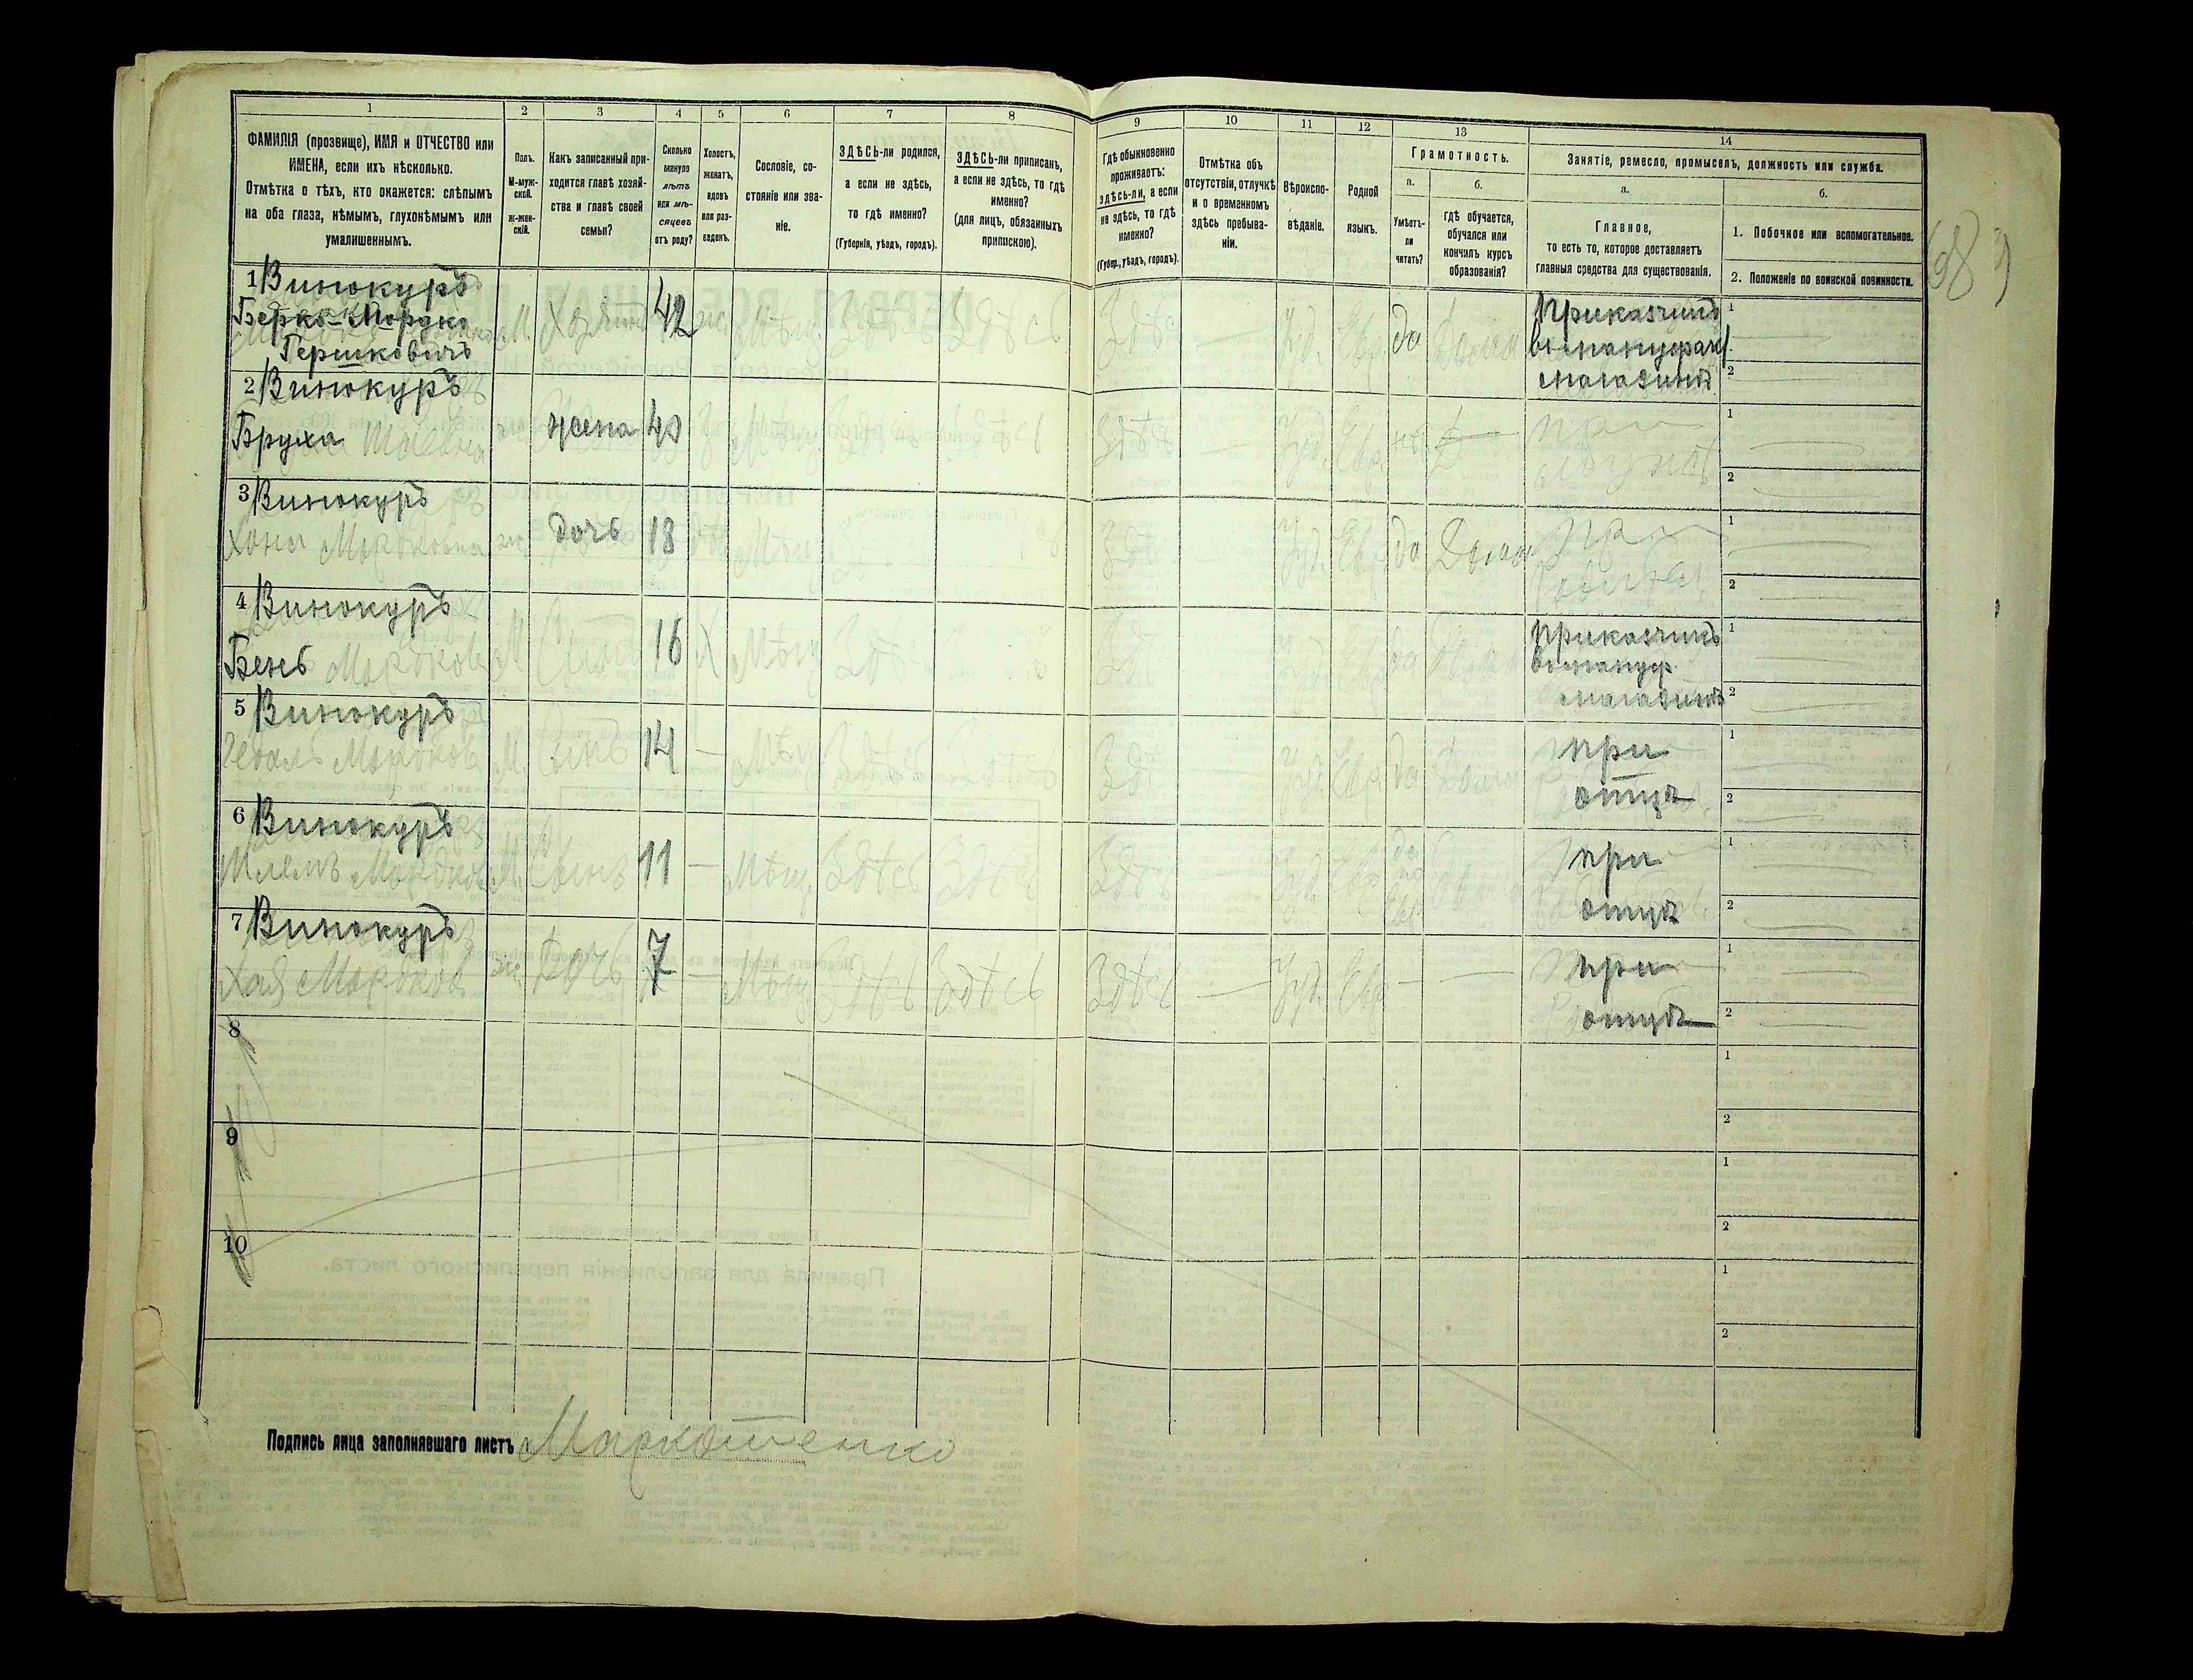 1 2 3 4 5 6 7 8 9 10 11 12 13 14
ФАМИЛІЯ (прозвище), ИМЯ и ОТЧЕСТВО или
ИМЕНА, если ихъ нѣсколько.
Отмѣтка о тѣхъ, кто окажется: слѣпымъ
на оба глаза, нѣмымъ, глухонѣмымъ или
умалишеннымъ.
Полъ.
М-муж-
ской.
ж-жен-
скій.
Какъ записанный при-
ходится главѣ хозяй-
ства и главѣ своей
семьи?
Сколько
минуло
лѣтъ
или мѣ-
сяцевъ
отъ роду?
Холостъ,
женатъ,
вдовъ
или раз-
веденъ.
Сословіе, со-
стояніе или зва-
ніе.
ЗДѢСЬ-ли родился,
а если не здѣсь,
то гдѣ именно?
(Губернія, уѣздъ, городъ).
ЗДѢСЬ-ли приписанъ,
а если не здѣсь, то гдѣ
именно?
(для лицъ, обязанныхъ
припискою).
Гдѣ обыкновенно
проживаетъ:
здѣсь-ли, а если
не здѣсь, то гдѣ
именно?
(Губер., уѣздъ, городъ).
Отмѣтка объ
отсутствіи, отлучкѣ
и о временномъ
здѣсь пребыва-
ніи.
Вѣроиспо-
вѣданіе.
Родной
языкъ.
Грамотность.
а.
Умѣетъ-
ли
читать?
б.
гдѣ обучается,
обучался или
кончилъ курсъ
образованія?
Занятіе, ремесло, промыселъ, должность или служба.
а.
Главное,
то есть то, которое доставляетъ
главныя средства для существованія.
б.
1. Побочное или вспомогательное.
2. Положеніе по воинской повинности.
68
1 Винокуръ
Берко-Мордко
Гершковичъ
М. Хозяинъ 42 ж. Мѣщ. Здѣсь Здѣсь Здѣсь — Іуд. Евр. да Дома
Приказчикъ
в мануфак
магазинѣ
1
2
2 Винокуръ
Бруха
жена 40 Мѣщ. Здѣсь Здѣсь — Іуд. Евр. нѣтъ — при
1
2
3 Винокуръ
Хона Мордковна ж. дочь 18 Мѣщ. Здѣ Іуд. Евр. да Дома при
1
2
4 Винокуръ
Бень Мордковъ М Сынъ 16 Х Мѣщ. Здѣ Здѣ Іуд. Евр. да
Приказчикъ
в мануф.
магазинѣ
1
2
5 Винокуръ
Мордковъ М. Сынъ 14 — Мѣщ. Здѣсь Здѣсь Здѣ — Іуд. Евр. да Дома
при
отцѣ
1
2
6 Винокуръ
Мордков М. Сынъ 11 — Мѣщ. Здѣсь Здѣсь Здѣсь — Іуд. Евр. да по Евр
при
отцѣ
1
2
7 Винокуръ
Хая Мордков ж. Дочь 7 — Мѣщ. Здѣсь Здѣсь Здѣсь — Іуд. Евр. — —
при
отцѣ
1
2
8
1
2
9
1
2
10
1
2
Подпись лица заполнявшаго листъ